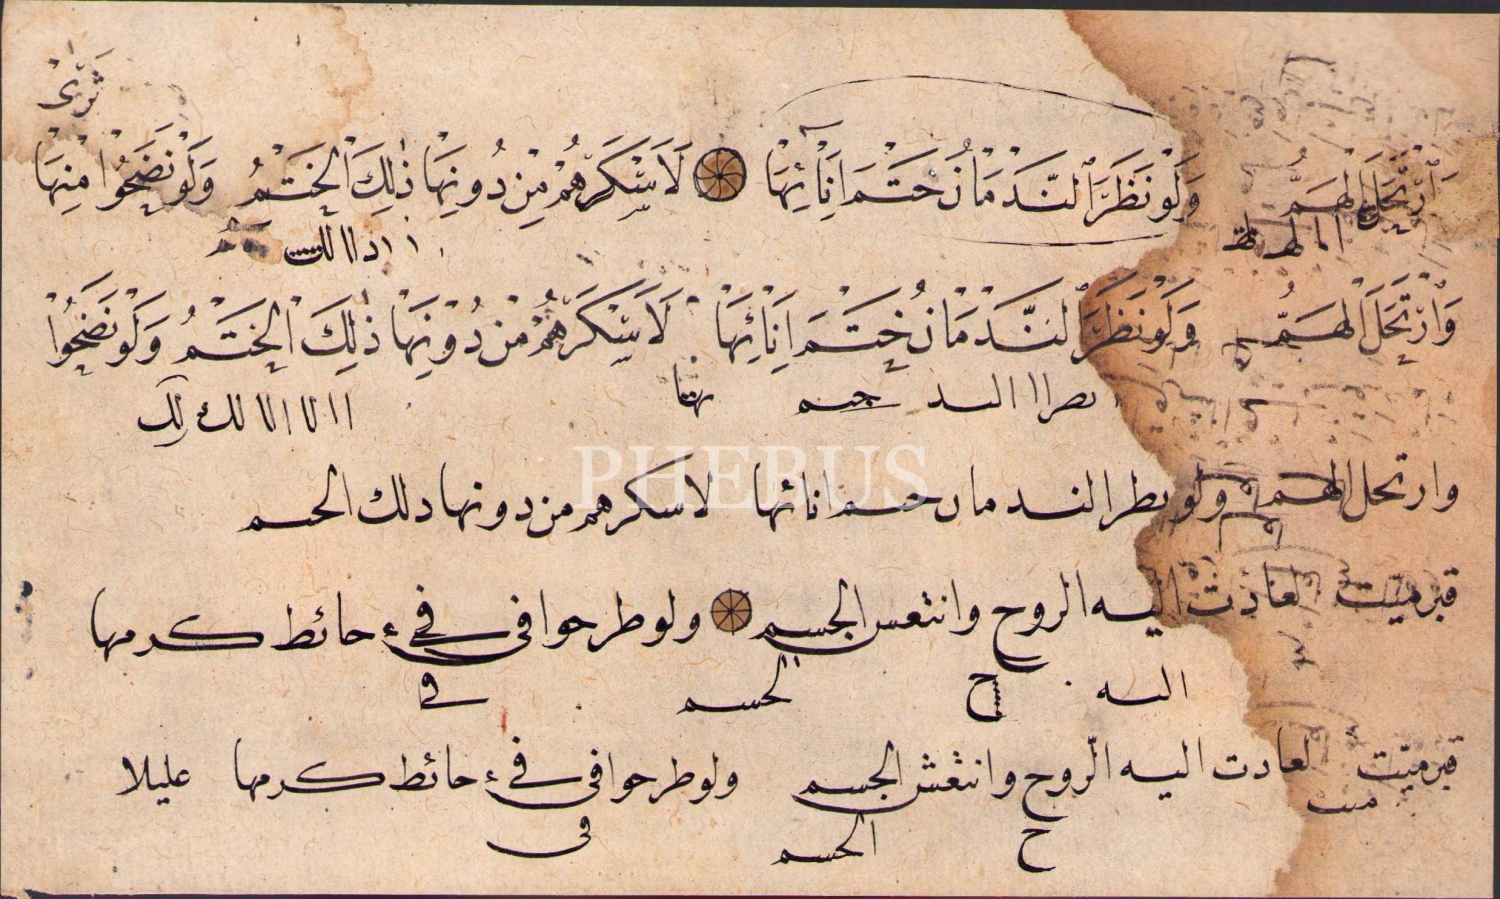 ثرى
وَارْتَحَلَ الْهَمُّ وَلَوْ نَظَرَ النَّدْمَانُ خَتْمَ اِنَائِهَا لَاَسْكَرَهُمْ مِنْ دُونِهَا ذٰلِكَ الْخَتْمُ وَلَوْ نَضَحُوْا مِنْهَا
وَارْتَحَلَ الْهَمُّ وَلَوْ نَظَرَ النَّدْمَانُ خَتْمَ اِنَائِهَا لَاَسْكَرَهُمْ مِنْ دُوْنِهَا ذٰلِكَ الْخَتْمُ وَلَوْ نَضَحُوْا
وارتحل الهم ولو نطر الندمان حتم انائها لاسكرهم من دونها دلك الحتم
PHEBUS
قبر ميت لعادت اليه الروح وانتعس الجسم ولو طرحوا فى فيء حائط كرمها
اليه ح الحسم فى
قبر ميّت لعادت اليه الرّوح وانتعش الجسم ولو طرحوا فى فيء حائط كرمها عليلا
ميت ح الحسم فى